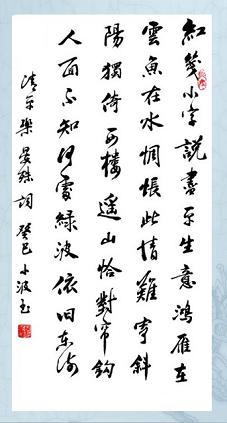 紅箋小字說盡平生意鴻雁在
雲魚在水惆悵此情難寄斜
陽獨倚西樓遙山恰對帘鈎
人面不知何處綠波依旧東流
清平樂晏殊詞癸巳小波書